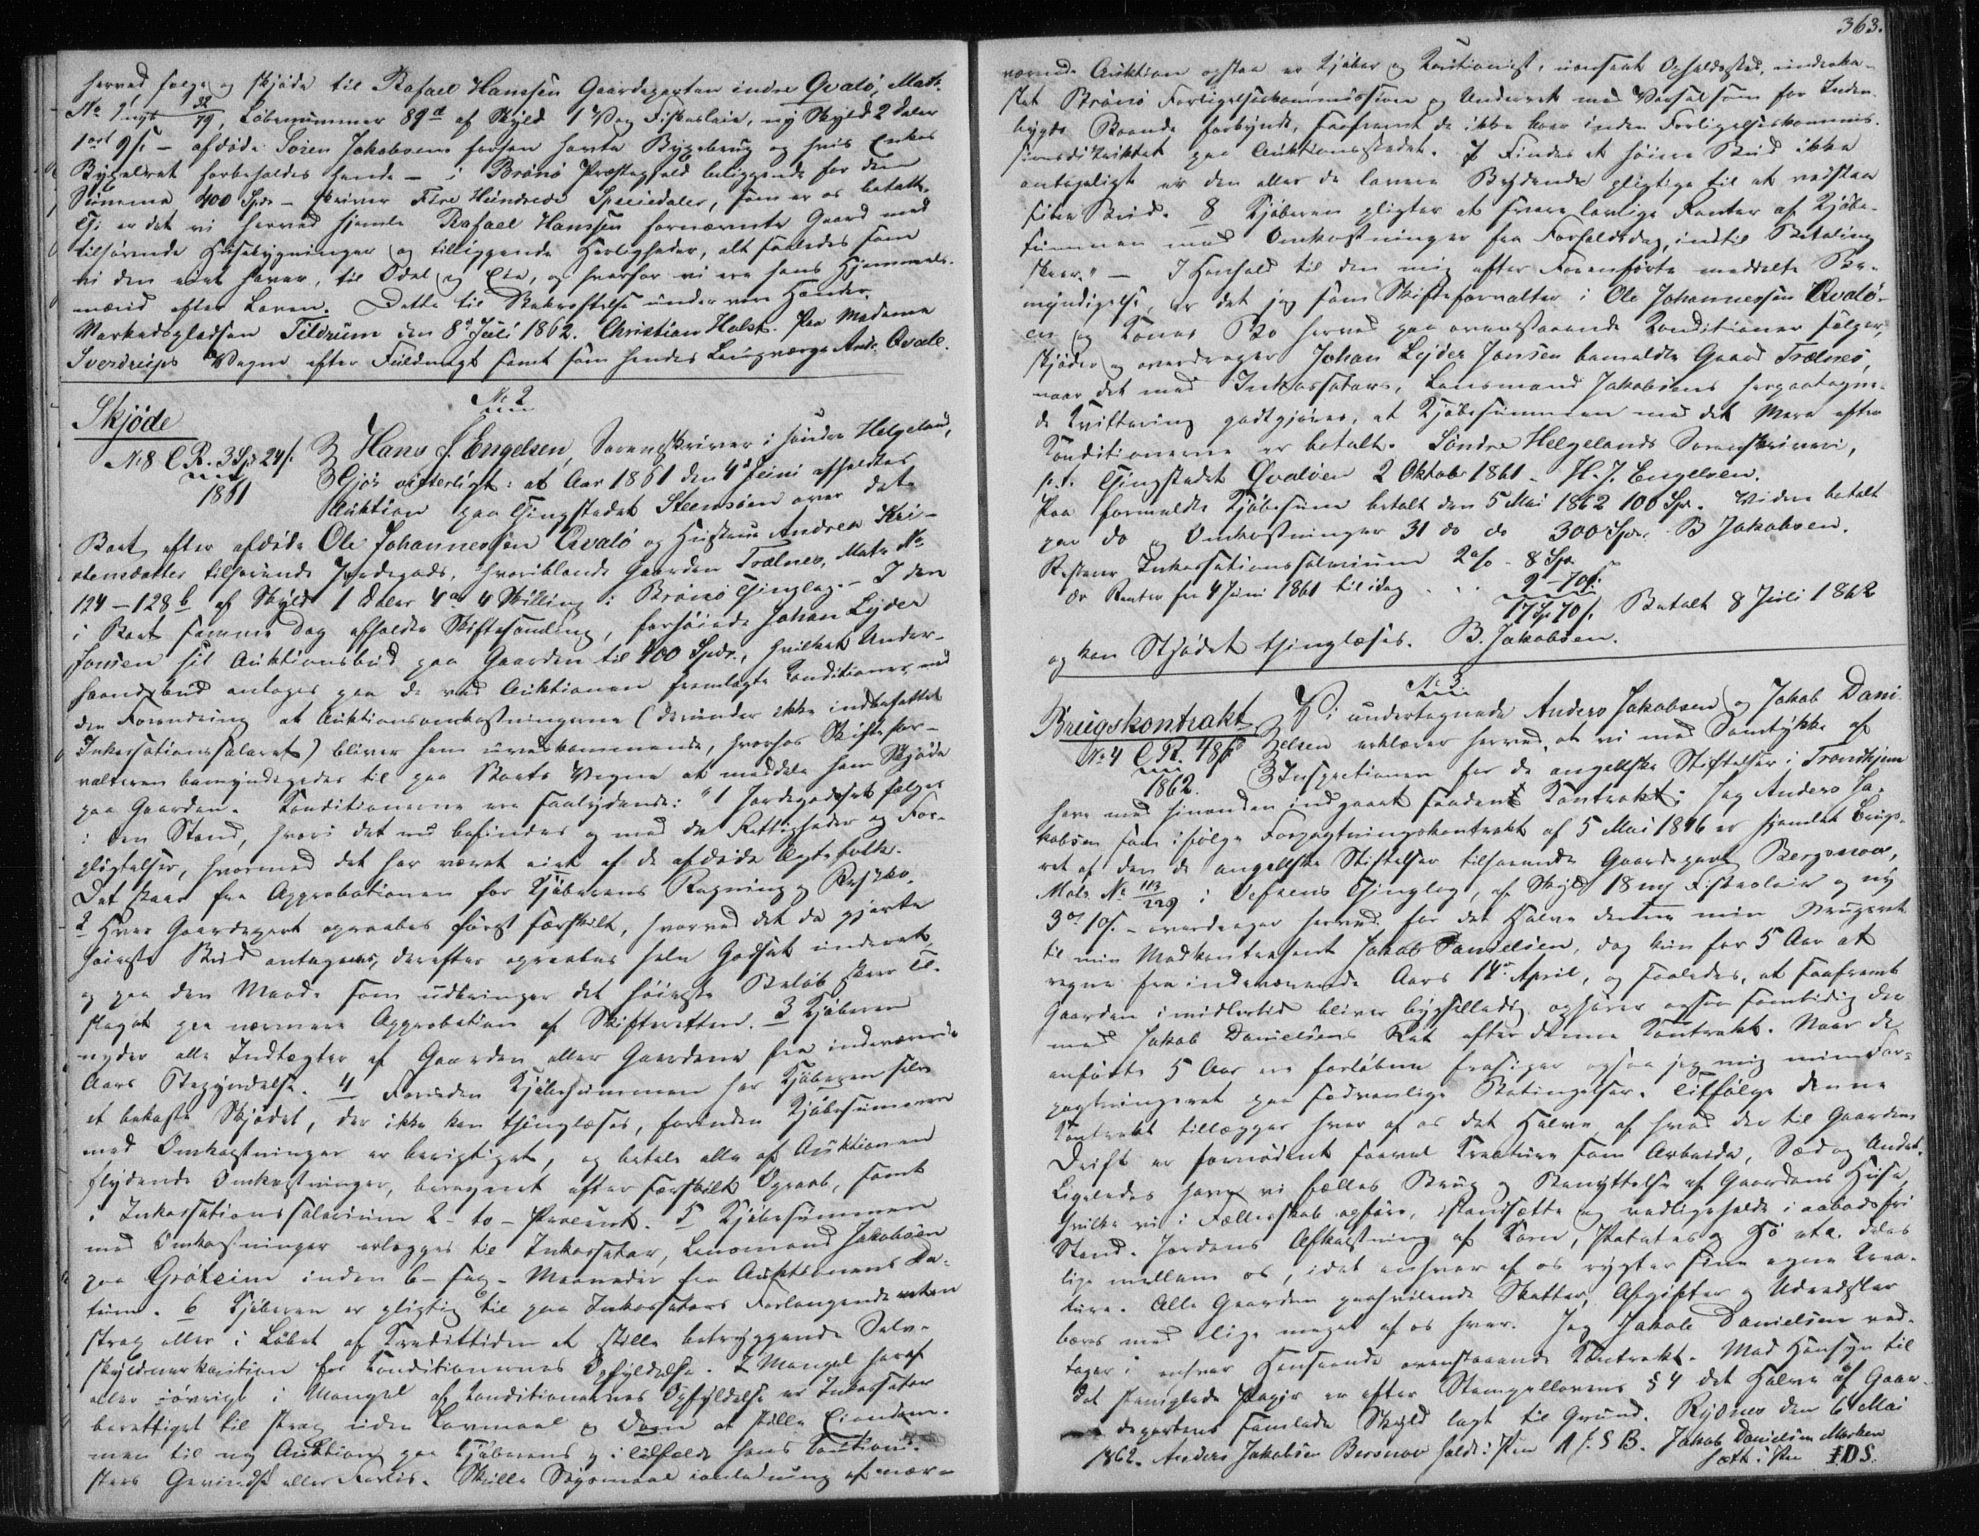 herved sælge og skjøde til Rafael Hanssen Gaardeparten indre Qvalø, Matr.
No 9 nyt 32/79 Løbenummer 89a af Skyld 1 Vog Fiskeleie, ny Skyld 2 Daler
1 ort 9 s. – afdøde Søren Jakobsens forhen havte Bygselbrug og hvis Enkes
Bygselret forbeholdes hende – i Brønø Præstegjeld beliggende for den
Summa 400 Spd – skriver Fire Hundrede Speciedaler, som er os betalt.
Thi er det vi herved hjemle Rafael Hanssen fornævnte Gaard med
tilhørende Husebygninger og tilliggende Herligheder, alt saaledes som
vi den eiet haver, til Odel og Eie, og hvorfor vi ere hans Hjemmels-
mænd efter Loven. Dette til Bekræftelse under vore Hænder.
Markedspladsen Tilrum den 8de Juli 1862. Christian Holst. Paa Madame
Sverdrups Vegne efter Fuldmagt samt som hendes Laugværge And. Qvale.
No 2
Skjøde
No 8 C. R. 3 Sp 24 s.
1861
Hans J. Engelsen, Sorenskriver i søndre Helgeland,
Gjør vitterligt: at Aar 1861 den 4de Juni afholdtes
Auktion paa Thingstedet Steensøen over det
Boet efter afdøde Ole Johannessen Qvalø og Hustru Andrea Kri-
stensdatter tilhørende Jordegods, hvoriblandt Gaarden Trælnes, Matr No
124 – 128 b af Skyld 1 Daler 4 ort 4 Skilling i Brønø Thinglag. – I den
i Boet samme Dag afholdte Skiftesamling, forhøiede Johan Lejder
Jonsen sit Auktionsbud paa Gaarden til 400 Spdr., hvilket Under-
haandsbud antoges paa de ved Auktionen fremlagte Konditioner med
den Forandring at Auktionsomkostningerne (derunder ikke indbefattet
Inkassationssalaret) bliver ham uvedkommende, hvorhos Skiftefor-
valteren bemyndigedes til paa Boets Vegne at meddele ham Skjøde
paa Gaarden. Konditionerne ere saalydende: "1 Jordegodset sælges
i den Stand, hvori det nu befindes og med de Rettigheder og For-
pligtelser, hvormed det har været eiet af de afdøde Ægtefolk.
Det staar fra Approbationen for Kjøberens Regning og Resiko.
2 Hver Gaardepart opraabes først særskilt, hvorved det da gjorte
høieste Bud antages, derefter opraabes hele Godset underet
og paa den Maade som udbringer det høieste Beløb skeer Til-
slaget paa nærmere Approbation af Skifteretten. 3 Kjøberen
nyder alle Indtægter af Gaarden eller Gaardene fra indeværende
Aars Begyndelse. 4 Foruden Kjøbesummen har Kjøberen selv
at bekoste Skjødet, der ikke kan thinglæses, forinden Kjøbesummen
med Omkostninger er berigtiget, og betale alle af Auktionen
flydende Omkostninger, beregnet efter særskilt Opraab, samt
i Inkassationssalarium 2 – to – Procent. 5 Kjøbesummen
med Omkostninger erlægges til Inkassator, Lensmand Jakobsen
paa Grøteim inden 6 – sex – Maaneder fra Auktionens Da-
tum. 6 Kjøberen er pligtig til paa Inkassators Forlangende enten
strax eller i Løbet af Kredittiden at stille betryggende Selv-
skyldnerkaution for Konditionernes Opfyldelse. I Mangel heraf
eller iøvrigt i Mangel af Konditionernes Opfyldelse er Inkassator
berettiget til strax uden Lovmaal og Dom at stille Eiendom-
men til ny Auktion paa Kjøberens og i Tilfælde hans Kautioni-
sters Gevindst eller Forlis. Skulle Søgsmaal i Anledning af nær-
363.
værende Auktion opstaa er Kjøber og Kautionist, uanseet Opholdssted, underka-
stet Brønø Forligelseskommission og Underret med Varsel som for Inden-
bygds Boende forkyndt, saafremt de ikke boer inden Forligelseskommis-
sionsdistriktet paa Auktionsstedet. 7 Findes et høiere Bud ikke
antageligt er den eller de lavere Bydende pligtige til at vedstaa
sit Bud. 8 Kjøberen pligter at svare lovlige Renter af Kjøbe-
summen med Omkostninger fra Forfaldsdag, indtil Betaling
skeer." – I Henhold til den mig efter Foranførte meddelte Be-
myndigelse, er det jeg som Skifteforvalter i Ole Johannessen Qvalø-
en og Kones Bo herved paa ovenstaaende Konditioner sælger,
skjøder og overdrager Johan Lejder Jonsen bemeldte Gaard Trælnes,
naar det med Inkassators, Lensmand Jakobsens herpaategne-
de Kvittering godtgjøres, at Kjøbesummen med det Mere efter
Konditionerne er betalt. Søndre Helgelands Sorenskriveri,
p. t. Thingstedet Qvaløen 2 Oktob 1861. H. J. Engelsen.
Paa formeldte Kjøbesum betalt den 5 Mai 1862 100 Sp. Videre betalt
paa do og Omkostninger 31 do do 300 Spd. B Jakobsen.
Resterer Inkassationssalarium 2 % - 8 Sp.
do Renter fra 4 Juni 1861 til idag . . . 9 – 70 s.
17 Sp 70 s. Betalt 8 Juli 1862
og kan Skjødet thinglæses. B. Jakobsen.
No 3
Brugskontrakt
No 4 C. R. 48 s
1862.
Vi undertegnede Anders Jakobsen og Jakob Dani-
elsen erklærer herved, at vi med Samtykke af
Inspectionen for de angellske Stiftelser i Trondhjem
have med hinanden indgaaet saadan Kontrakt: Jeg Anders Ja-
kobsen som ifølge Forpagtningskontrakt af 5 Mai 1846 er hjemlet Brugs-
ret af den de angellske Stiftelser tilhørende Gaardepart Bergsnov,
Matr No 113/229 i Vefsens Thinglag, af Skyld 18 mk Fiskeleie og ny
3 ort 10 s. – overdrager herved for det Halve denne min Brugsret
til min Medkontrahent Jakob Danielsen, dog kun for 5 Aar at
regne fra indeværende Aars 14de April, og saaledes, at saafremt
Gaarden imidlertid bliver bygselledig, ophører ogsaa samtidig der-
med Jakob Danielsens Ret efter denne Kontrakt. Naar de
anførte 5 Aar ere forløbne frasiger ogsaa jeg mig min For-
pagtningsret paa sædvanlige Betingelser. Tilfølge denne
Kontrakt tillægges hver af os det Halve af hvad der til Gaardens
Drift er fornødent saavel Kreature som Arbeide, Sæd og Andet.
Ligeledes have vi fælles Brug og Benyttelse af Gaardens Huse,
hvilke vi i Fællesskab opføre, istandsætte og vedligeholde i aabodsfri
Stand. Jordens Afkastning af Korn, Potetes og Hø etc. deles
lige mellem os, idet enhver af os røgter sine egne Krea-
ture. Alle Gaarden paahvilende Skatter, Afgifter og Udredsler
bæres med lige meget af os hver. Jeg Jakob Danielsen ved-
tager i enhver Henseende ovenstaaende Kontrakt. Med Hensyn til
det stemplede Papir er efter Stempellovens § 4 det Halve af Gaar-
departens samlede Skyld lagt til Grund. Rynes den 6 Mai
1862. Anders Jakobsen Bersnov holdt i Pen A J. S B. Jakob Danielsen Marken
holdt i Pen I D S.